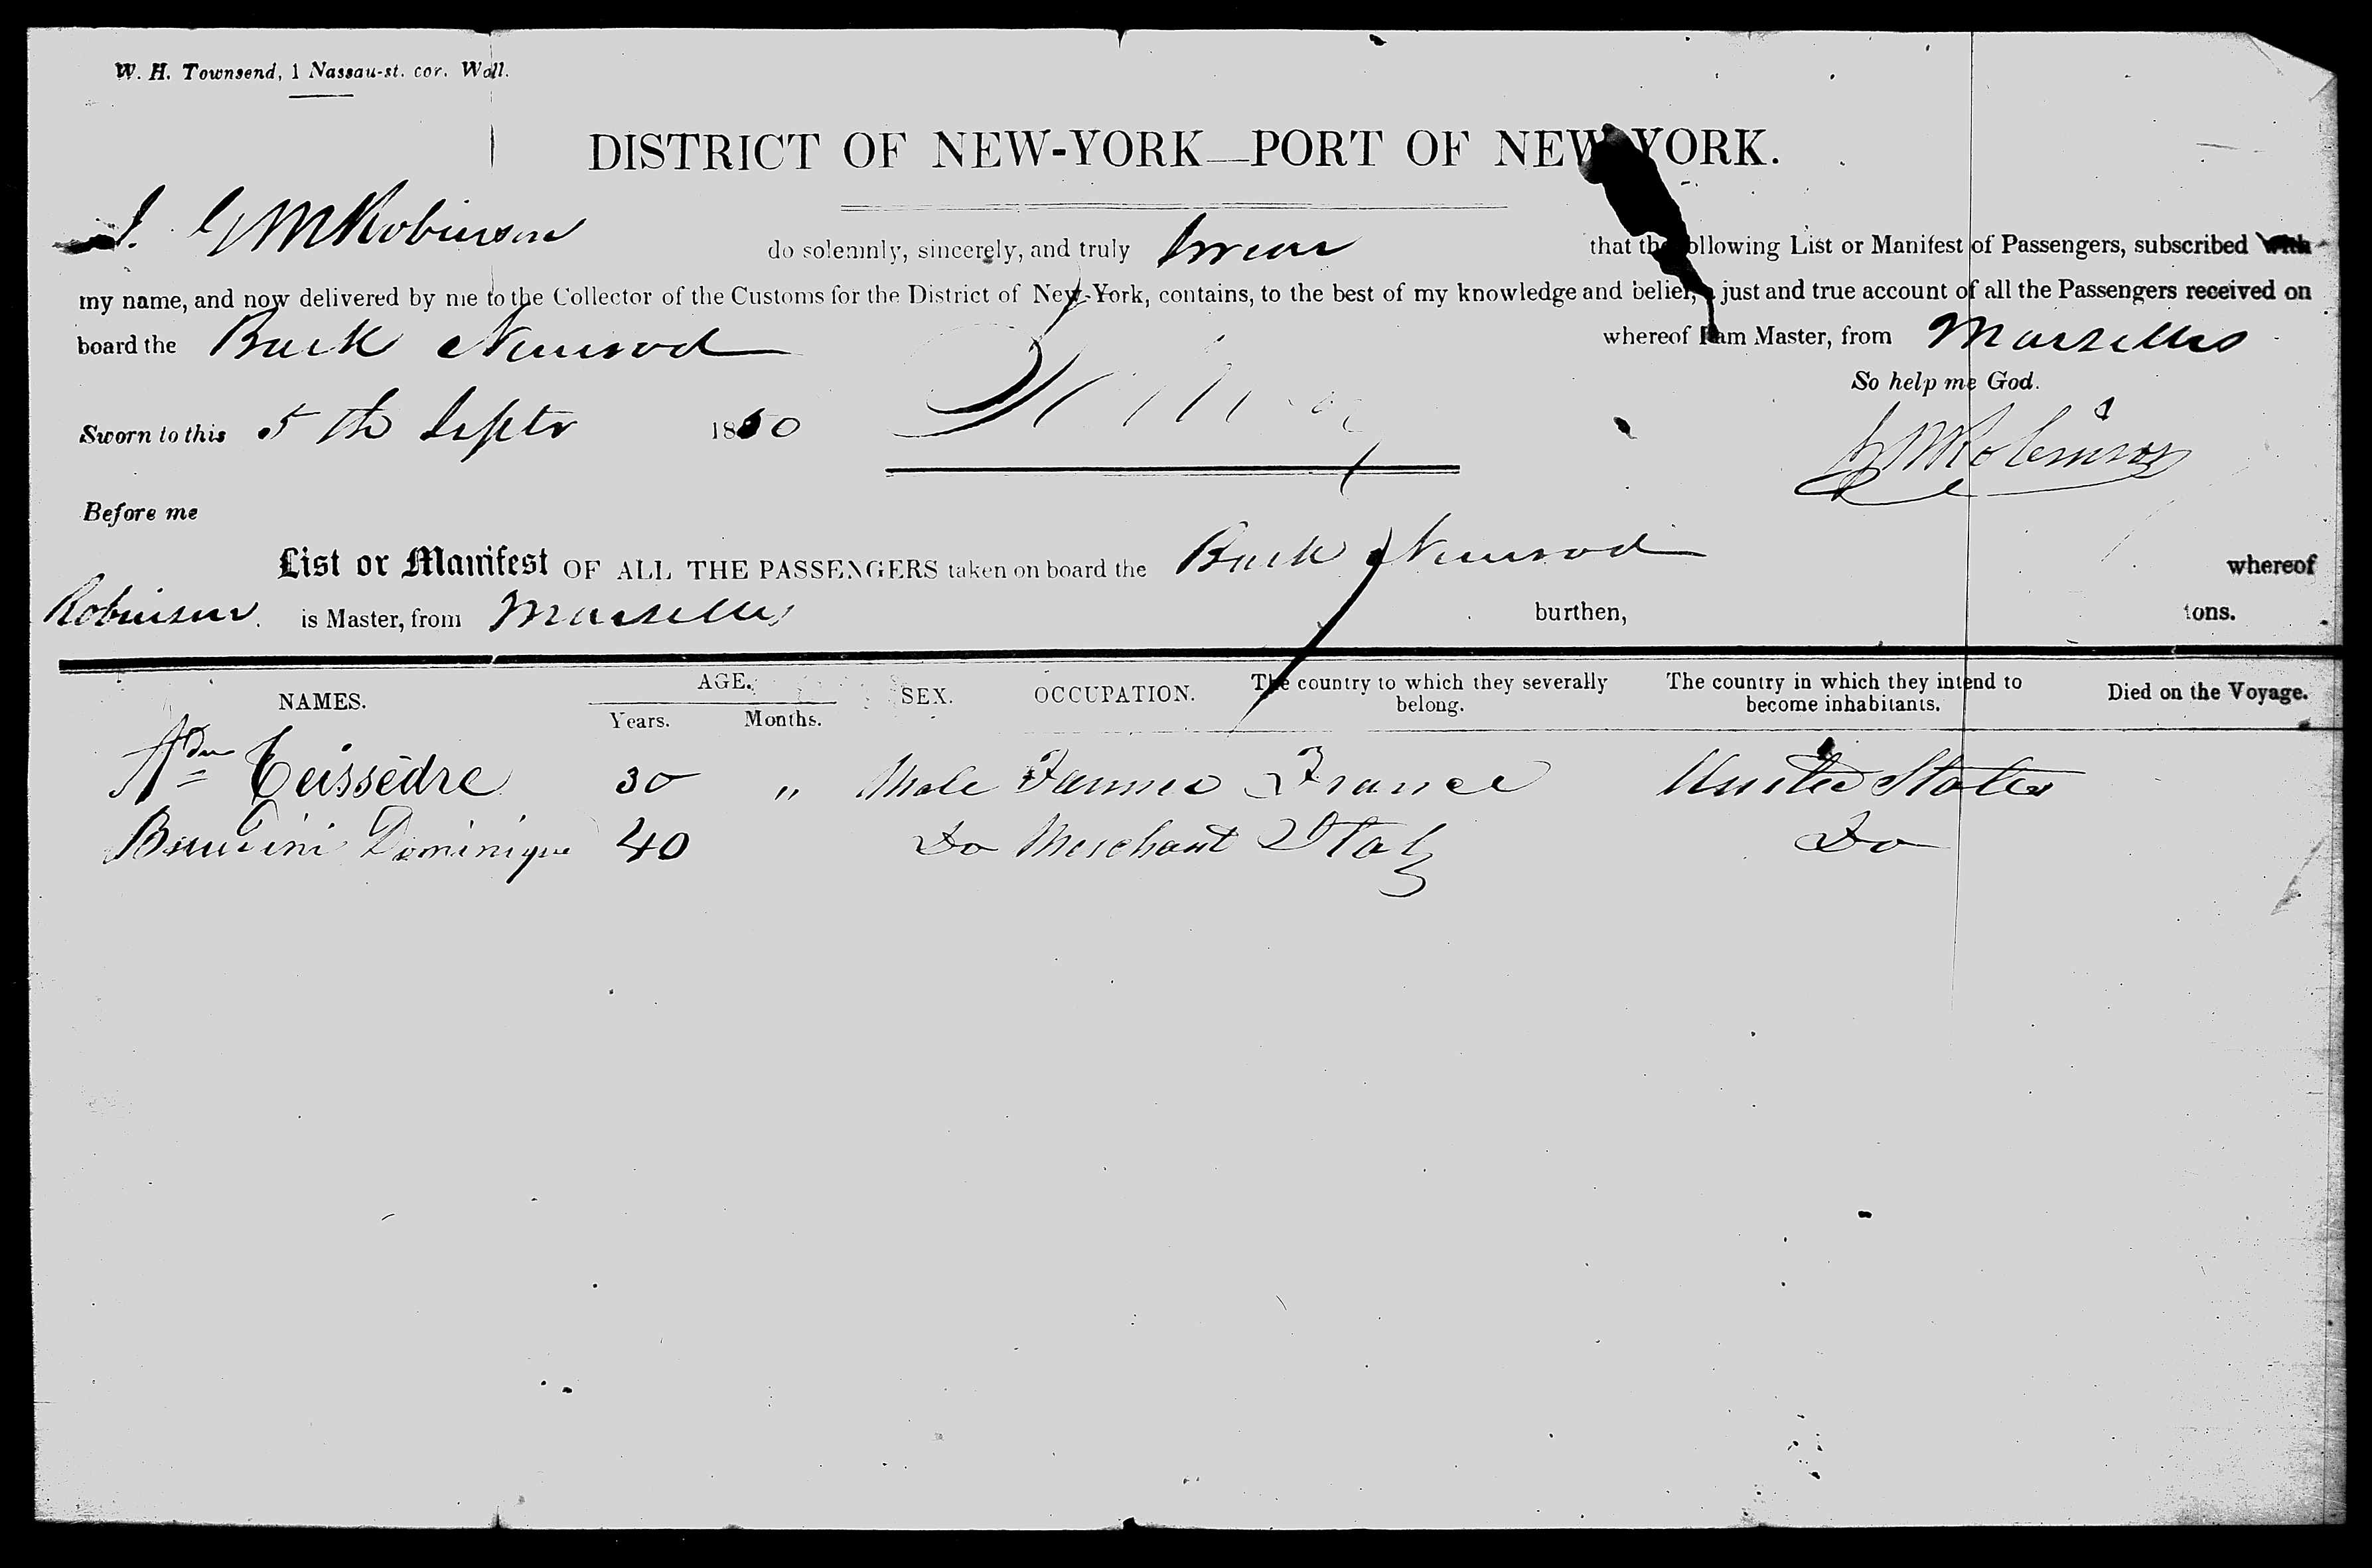 W. H. Townsend, 1 Nassau-st. cor. Wall.
DISTRICT OF NEW-YORK—PORT OF NEW YORK.
I. G M Robinson do solemnly, sincerely, and truly swear that the following List or Manifest of Passengers, subscribed with
my name, and now delivered by me to the Collector of the Customs for the District of New-York, contains, to the best of my knowledge and belief, a just and true account of all the Passengers received on
board the Bark Nimrod whereof I am Master, from Marselles
So help me God.
Sworn to this 5th Septr 1850
G M Robinson
Before me
List or Manifest OF ALL THE PASSENGERS taken on board the Bark Nimrod whereof
Robinson. is Master, from Marselles burthen, tons.
NAMES. AGE. Years. Months. SEX. OCCUPATION. The country to which they severally belong. The country in which they intend to become inhabitants. Died on the Voyage.
Teissèdre 30 " Male Farmer France United States
Dominique 40 Do Merchant Italy Do